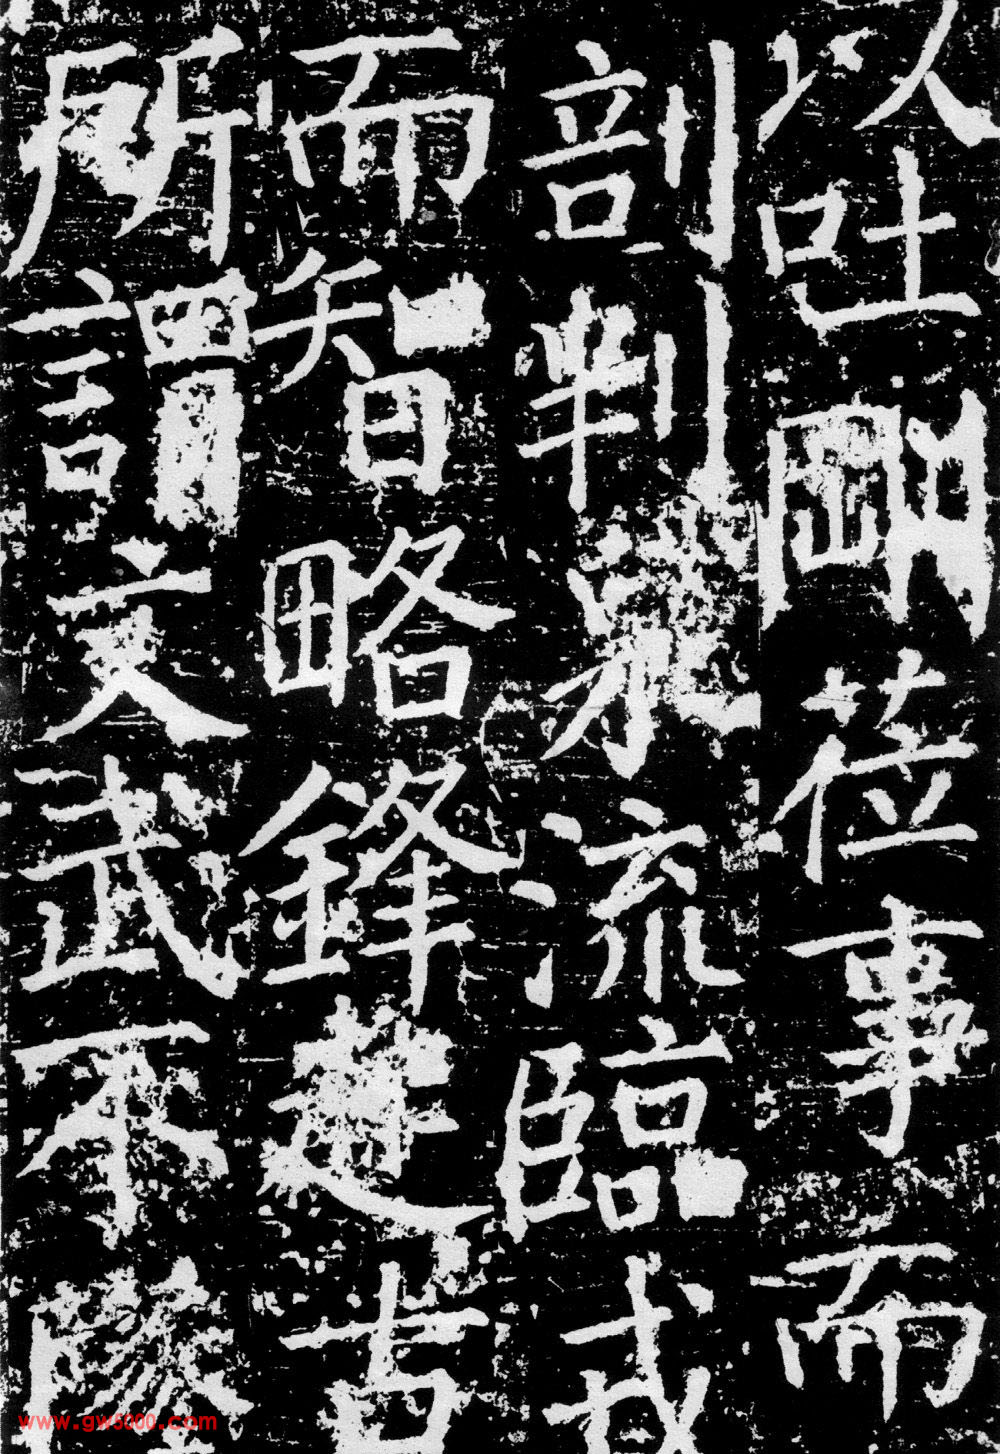 以吐剛莅事而
剖判泉流臨戎
而智略鋒起古
所謂文武不墜
www.gw5000.com